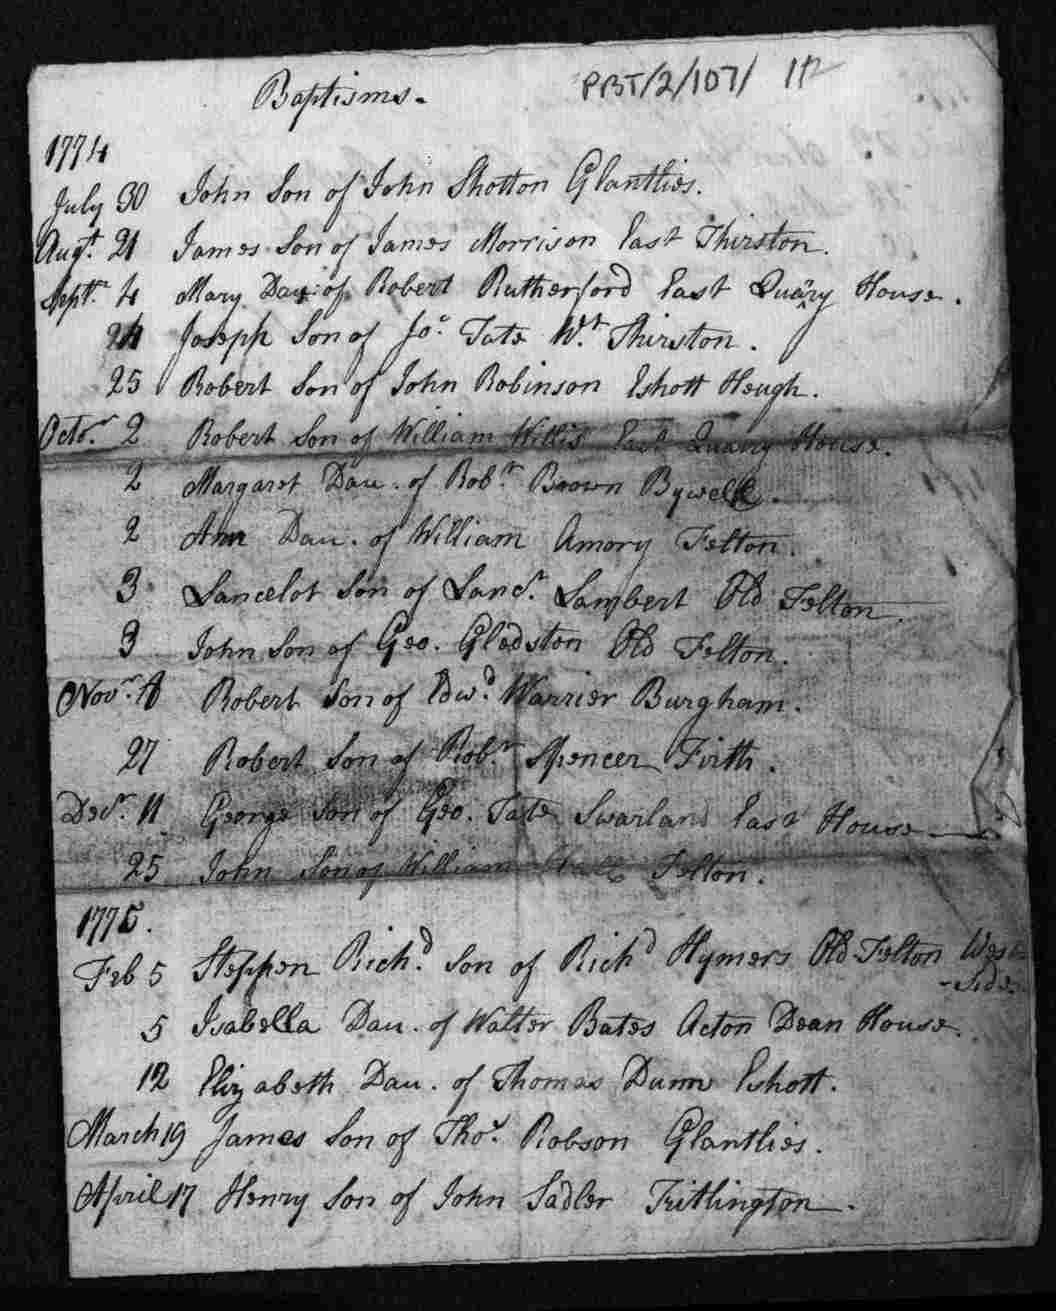 Baptisms.
PBT/2/107/ 112
1774
July 30 John Son of John Shotton Glantlies.
Augt. 21 James Son of James Morrison East Thirston.
Septr. 4 Mary Dau: of Robert Rutherford East Quarry House.
24 Joseph Son of Jo. Tate Wt. Thirston.
25 Robert Son of John Robinson Eshott Heugh.
Octor. 2 Robert Son of William Willis East Quarry House.
2 Margaret Dau. of Robt. Brown Bywell.
2 Ann Dau. of William Amory Felton.
3 Lancelot Son of Lanct. Lambert Old Felton.
3 John Son of Geo. Gledston Old Felton.
Novr. Robert Son of Edwd. Warrier Burgham.
27 Robert Son of Robt. Spencer Firth.
Decr. 11 George Son of Geo. Tate Swarland East House
25 John Son of William Felton.
1775.
Feb 5 Stephen Richd. Son of Richd Hymers Old Felton West
-Side.
5 Isabella Dau. of Walter Bates Acton Dean House.
12 Elizabeth Dau. of Thomas Dunn Eshott.
March 19 James Son of Thos. Robson Glantlies.
April 17 Henry Son of John Sadler Tritlington.